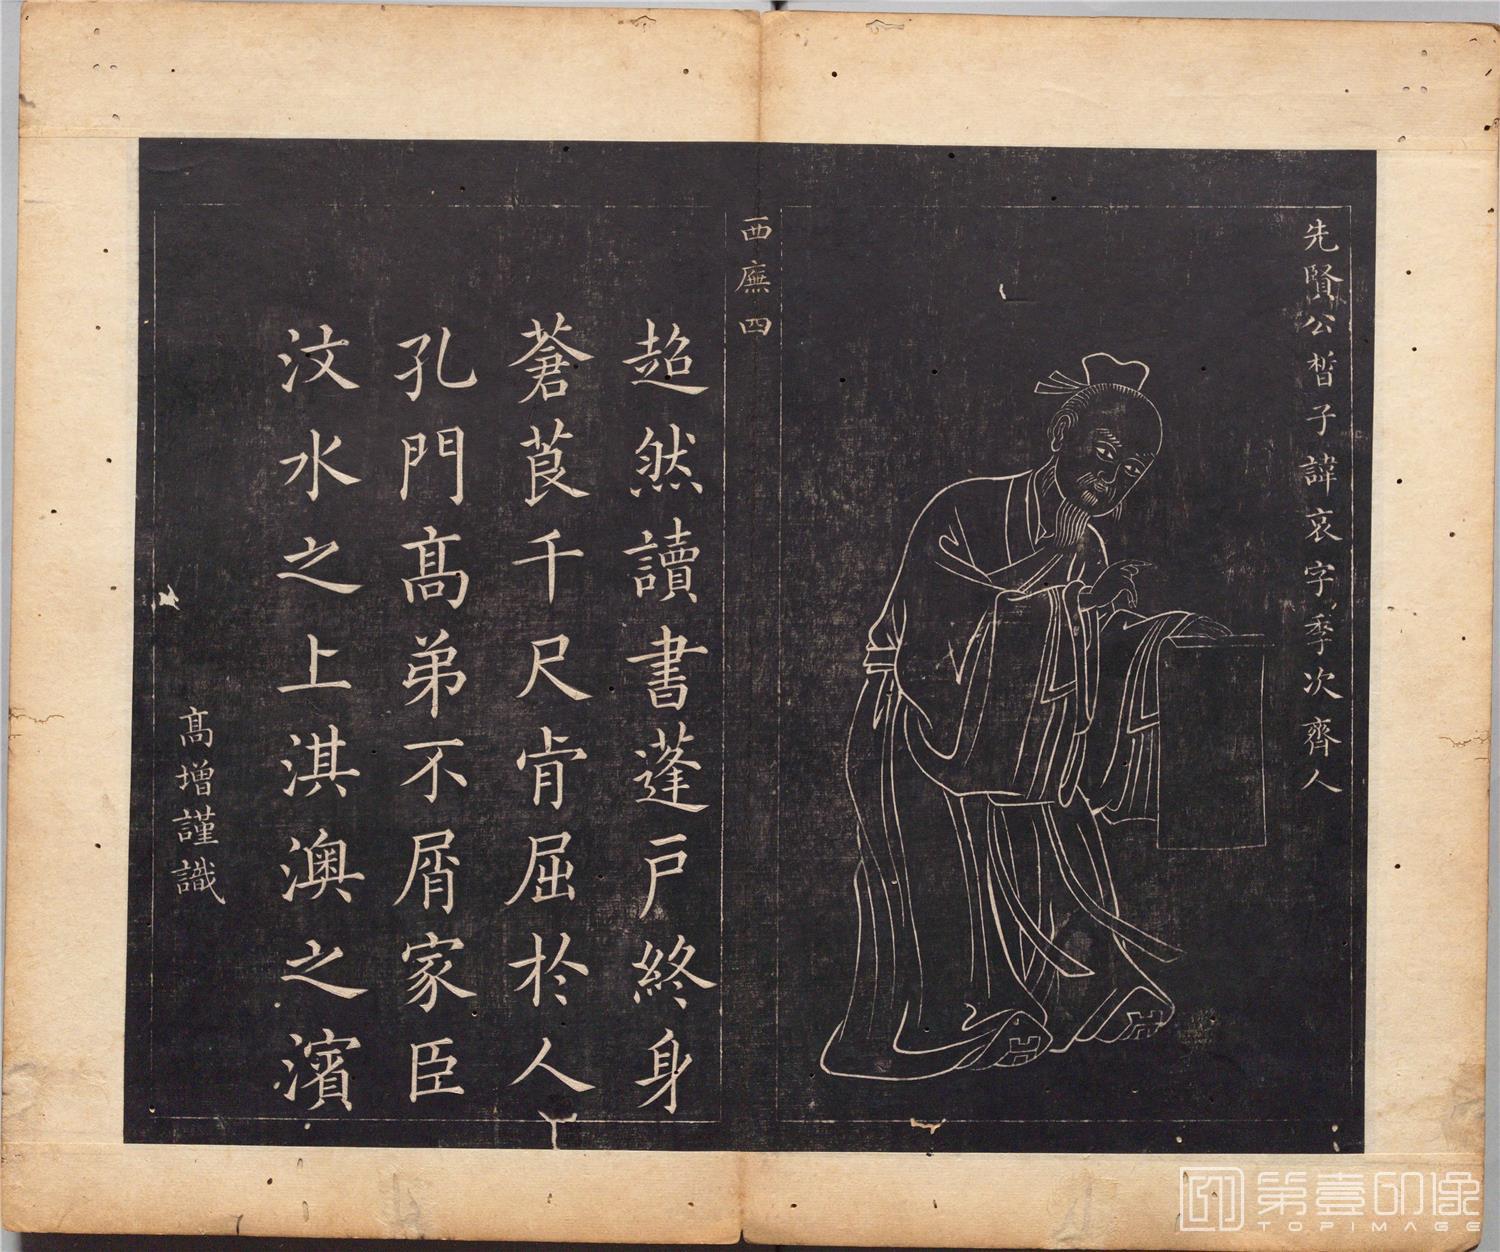 先賢公晳子諱哀字季次齊人
西廡四
超然讀書蓬戶終身
蒼茛千尺肯屈於人
孔門髙弟不屑家臣
汶水之上淇澳之濱
髙增謹識
第壹印像
TOPIMAGE